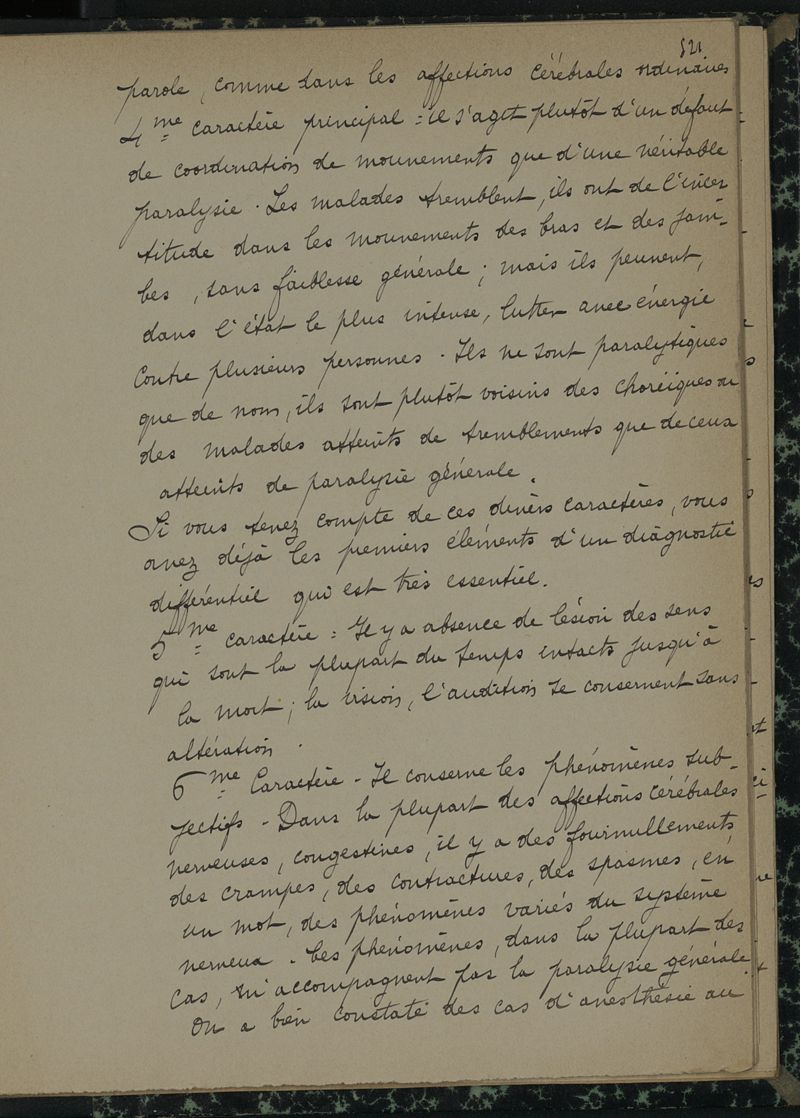 521
parole, comme dans les affections cérébrales ordinaires
4me caractère principal = il s'agit plutôt d'un défaut
de coordination de mouvements que d'une véritable
paralysie. Les malades tremblent, ils ont de l'incer
titude dans les mouvements des bras et des jam-
bes, sans faiblesse générale; mais ils peuvent,
dans l'état le plus intense, lutter avec énergie
contre plusieurs personnes. Ils ne sont paralytiques
que de nom, ils sont plutôt voisins des choréiques ou
des malades atteints de tremblements que de ceux
atteints de paralysie générale.
Si vous tenez compte de ces divers caractères, vous
avez déjà les premiers éléments d'un diagnostic
différentiel qui est très essentiel.
5me caractère = Il y a absence de lésion des sens
qui sont la plupart du temps intacts jusqu'à
la mort; la vision, l'audition se conservent sans
altération.
6me Caractère - Il conserve les phénomènes sub-
jectifs - Dans la plupart des affections cérébrales
nerveuses, congestives, il y a des fourmillements,
des crampes, des contractures, des spasmes, en
un mot, des phénomènes variés du système
nerveux. Ces phénomènes, dans la plupart des
cas, n'accompagnent pas la paralysie générale
On a bien constaté des cas d'anesthésie au